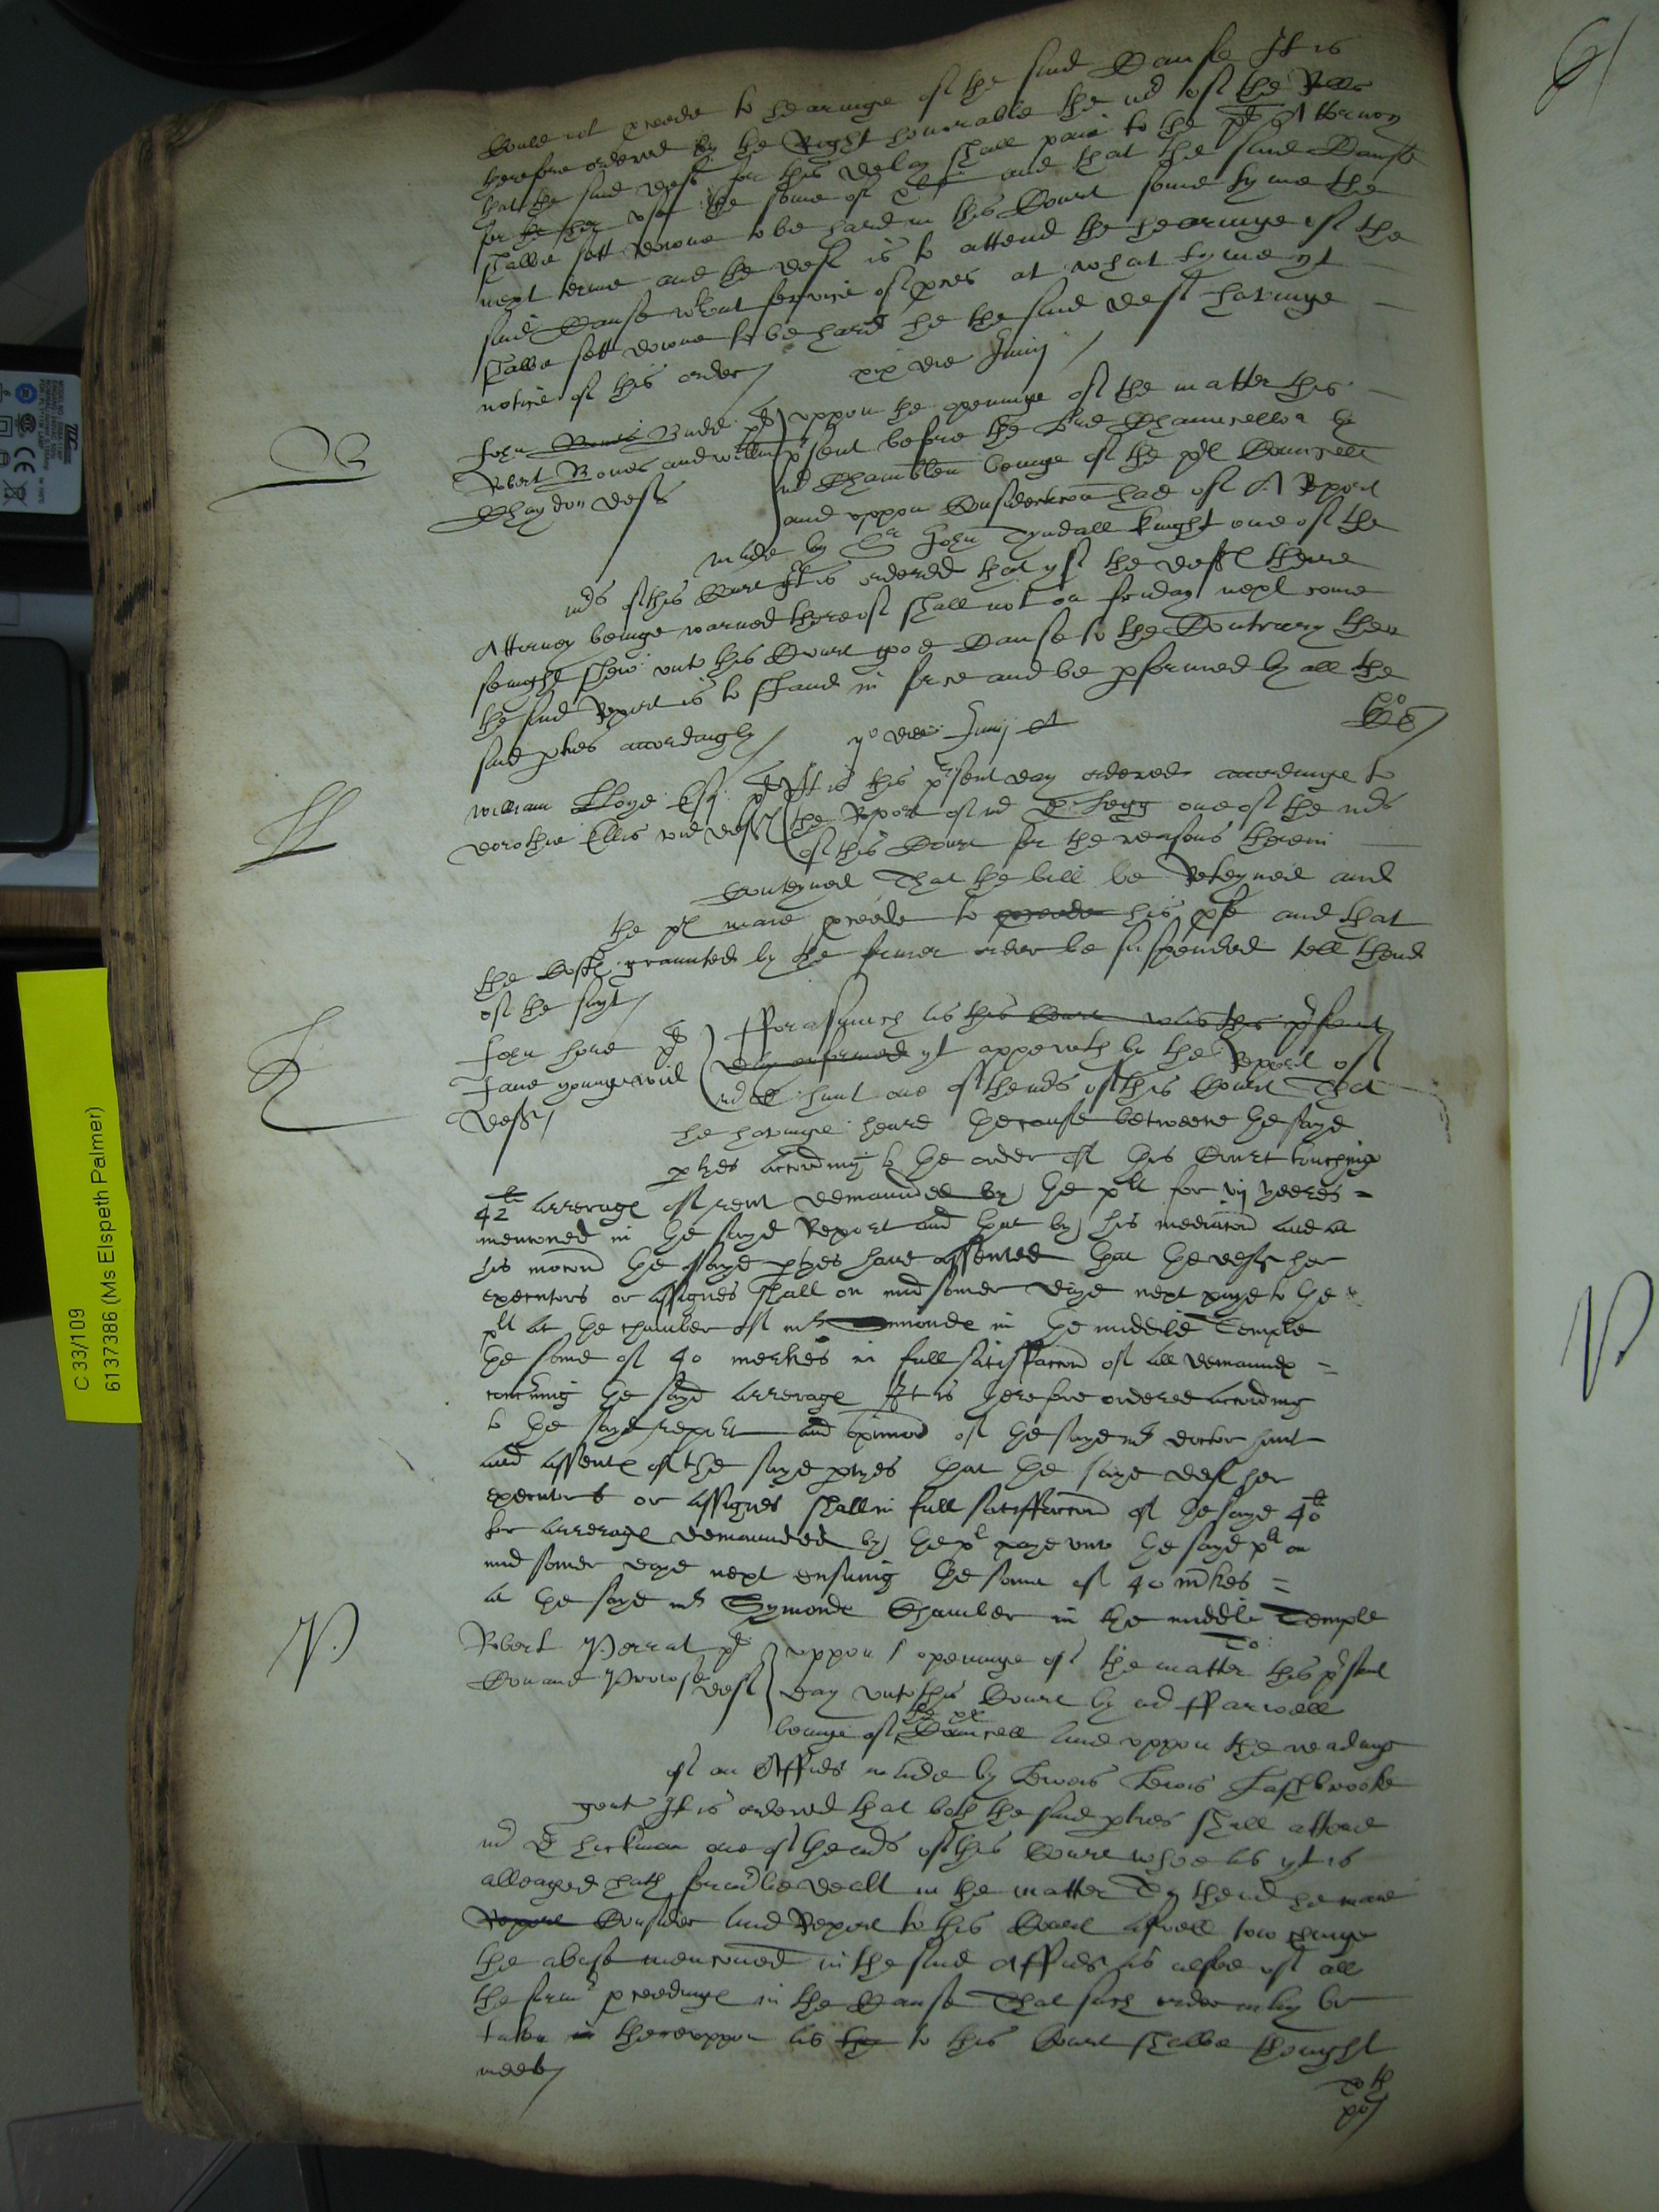 Could not proceede to hearinge of the said Cause It is
therefore ordered by the Right honorable the mr of the Rolls
that the said deft for this delay shall paie to the plt Attorney
for the her use the some of and that the said Cause
shalbe sett downe to be hard in this Court some tyme the
next terme and the deft is to attend the hearinge of the
said Cause wthout service of proces at what tyme yt
shalbe sett downe to be hard he the said deft havinge
notice of this order
xix die Junij
B
John Bones Budd plt
Robert Bones and willm
Chaydon defts
uppon the openinge of the matter this
psent before the Lord Chauncellor by
mr Chamblen beinge of the pl Councell
and uppon Consideracon had of A Report
made by Sr John Tyndall knight one of the
mrs of this Court It is ordered that yf the defts there
Attorney beinge warned thereof shall not on friday next come
senight shew unto this Court good Cause to the Contrary then
the said Report is to stand in force and be pformed by all the
said pties accordingly
die Junij A
William Lloyd Esq plt
dorothie Ellis wid deft
It is this psent day ordered accordinge to
the Report of mr D Legg one of the mrs
of this Court for the reasons therein
Conteyned That the bill be Reteyned and
the pl maie proceede to proceede his pfe and that
the Costs graunted by the former order be suspended tell thend
of the suyt
John hore plt
Jane younge wid
deft
Fforasmuch as this Court was this psent
day informed yt appereth by the Report of
mr D hunt one of the mrs of this Court That
he havinge heard the cause betweene the sayd
pties according to the order of this Court touching
42li arrerages of rent demaunded by the plt for vij yeeres
mencioned in the sayd Report and that by his mediacon and at
his mocion the sayd pties have assented that the deft her
executors or assignes shall on midsomer daye next paye to the
plt at the chamber of mr Simonds in the middle Temple
the some of 40 merkes in full satisfaccon of all demaunds
concerning the sayd arrerages It is therefore ordered according
to the sayd report and opinion of the sayd mr doctor hunt
and assente of the sayd pties that the saye deft her
executors or assignes shall in full satisffaccon of the sayd 42li
for arrerages demaunded by the pl paye unto the sayd plt on
midsomer daye next ensuing the some of 40 mrkes
at the sayd mr Symonds Chamber in the middle Temple
P
Robert Perrat plt
Prowse deft
uppon openinge of the matter this psent
day unto this Court by mr Ffarwell
beinge of the pl Councell and uppon the readinge
of an Affid made by Lewes Lewis Lashbrooke
gent It is ordered that both the said pties shall attend
mr D hickman one of the mrs of this Court whoe as yt is
alleaged hath formrlie dealt in the matter To thend he maie
Report Consider and Report to this Court aswell towchinge
the abuse mencioned in the said Affid as alsoe of all
the formr proceedings in the Cause That such order may be
taken in thereuppon as the to this Court shalbe thought
meete
C 33/109
6137386 (Ms Elspeth Palmer)